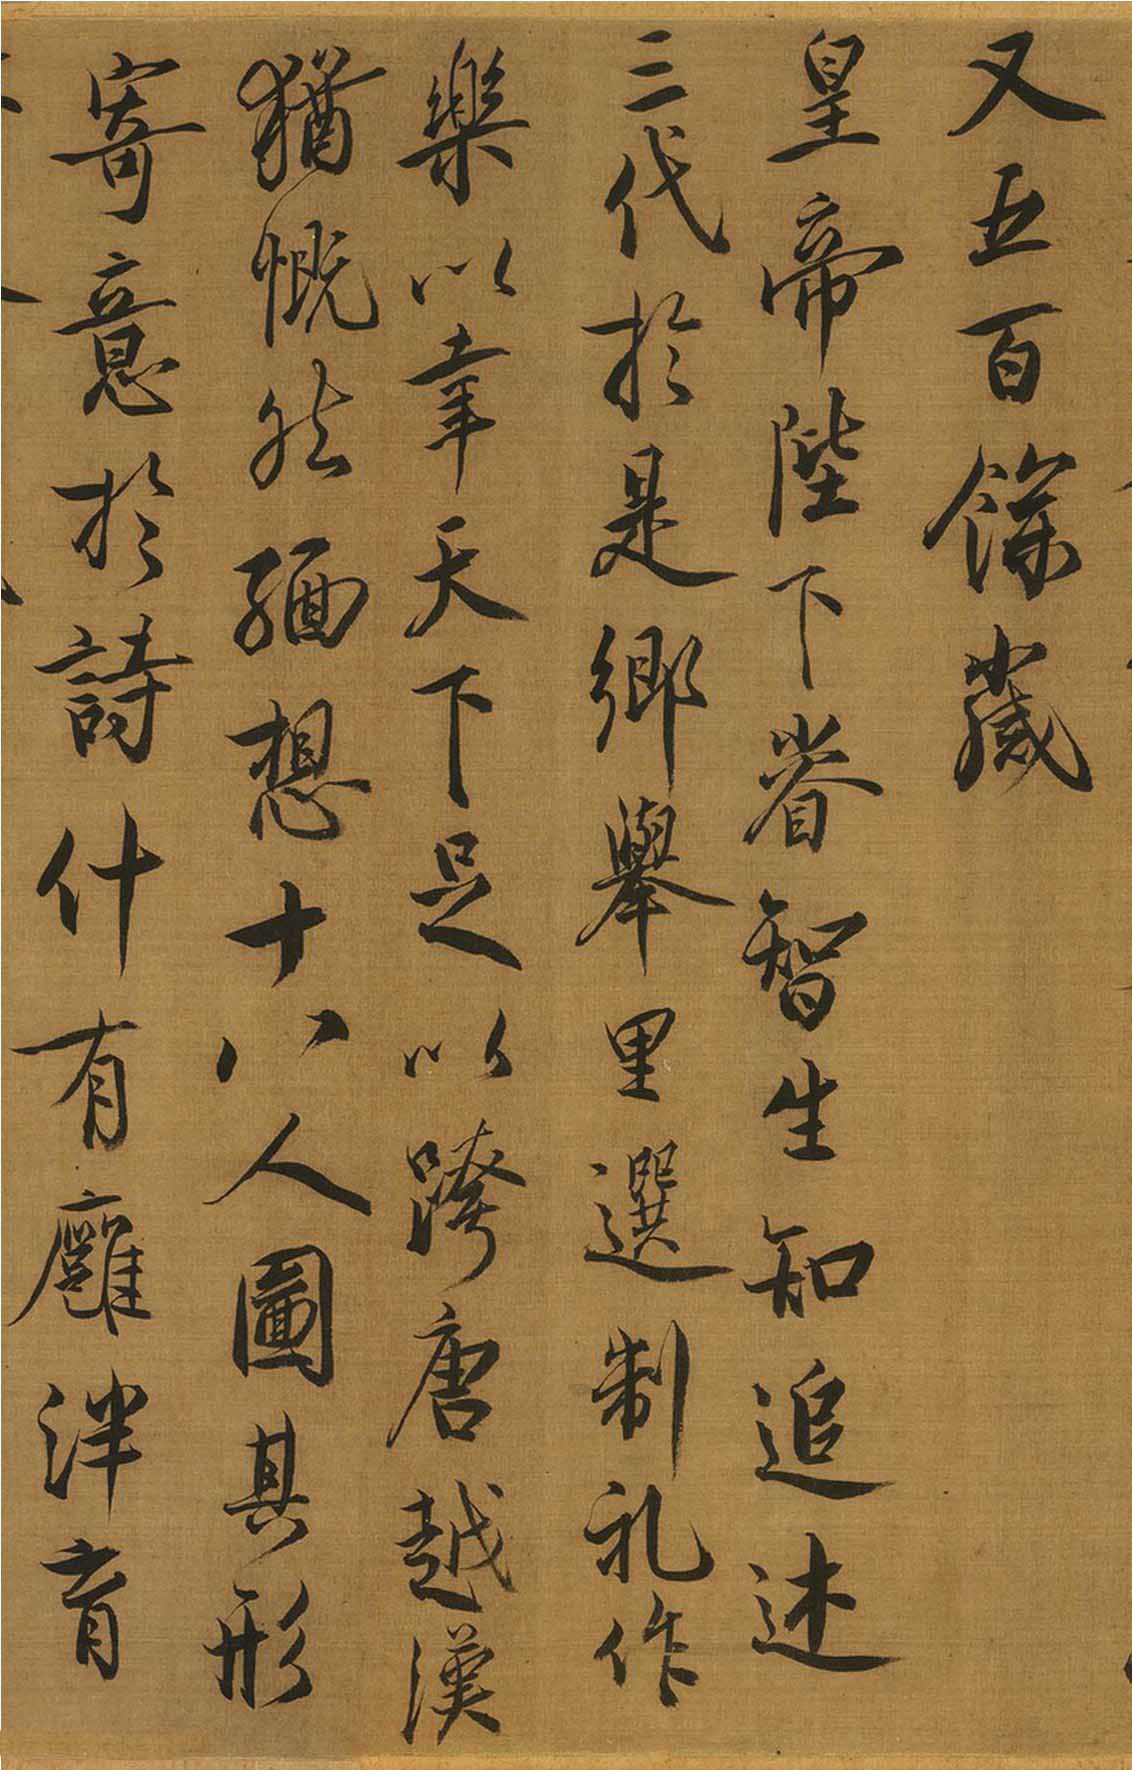 又五百餘歲
皇帝陛下睿智生知追述
三代於是鄉舉里選制礼作
樂以幸天下足以跨唐越漢
猶慨然緬想十八人圖其形
寄意於詩什有廱泮育